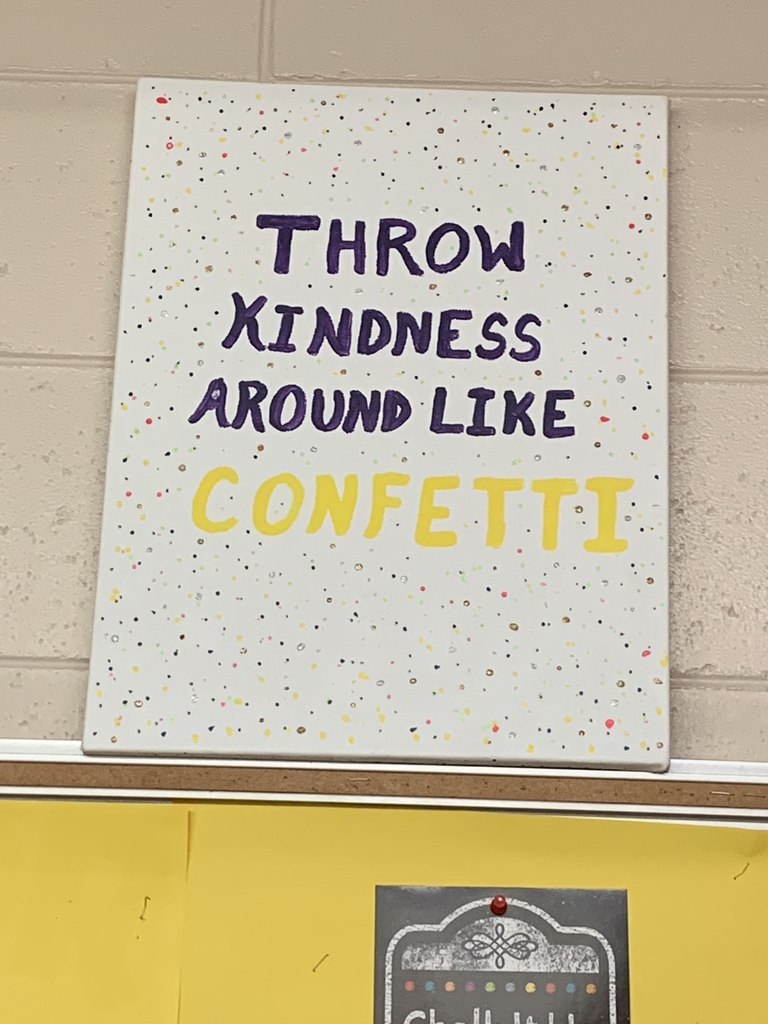 THROW
KINDNESS
AROUND LIKE
CONFETTI